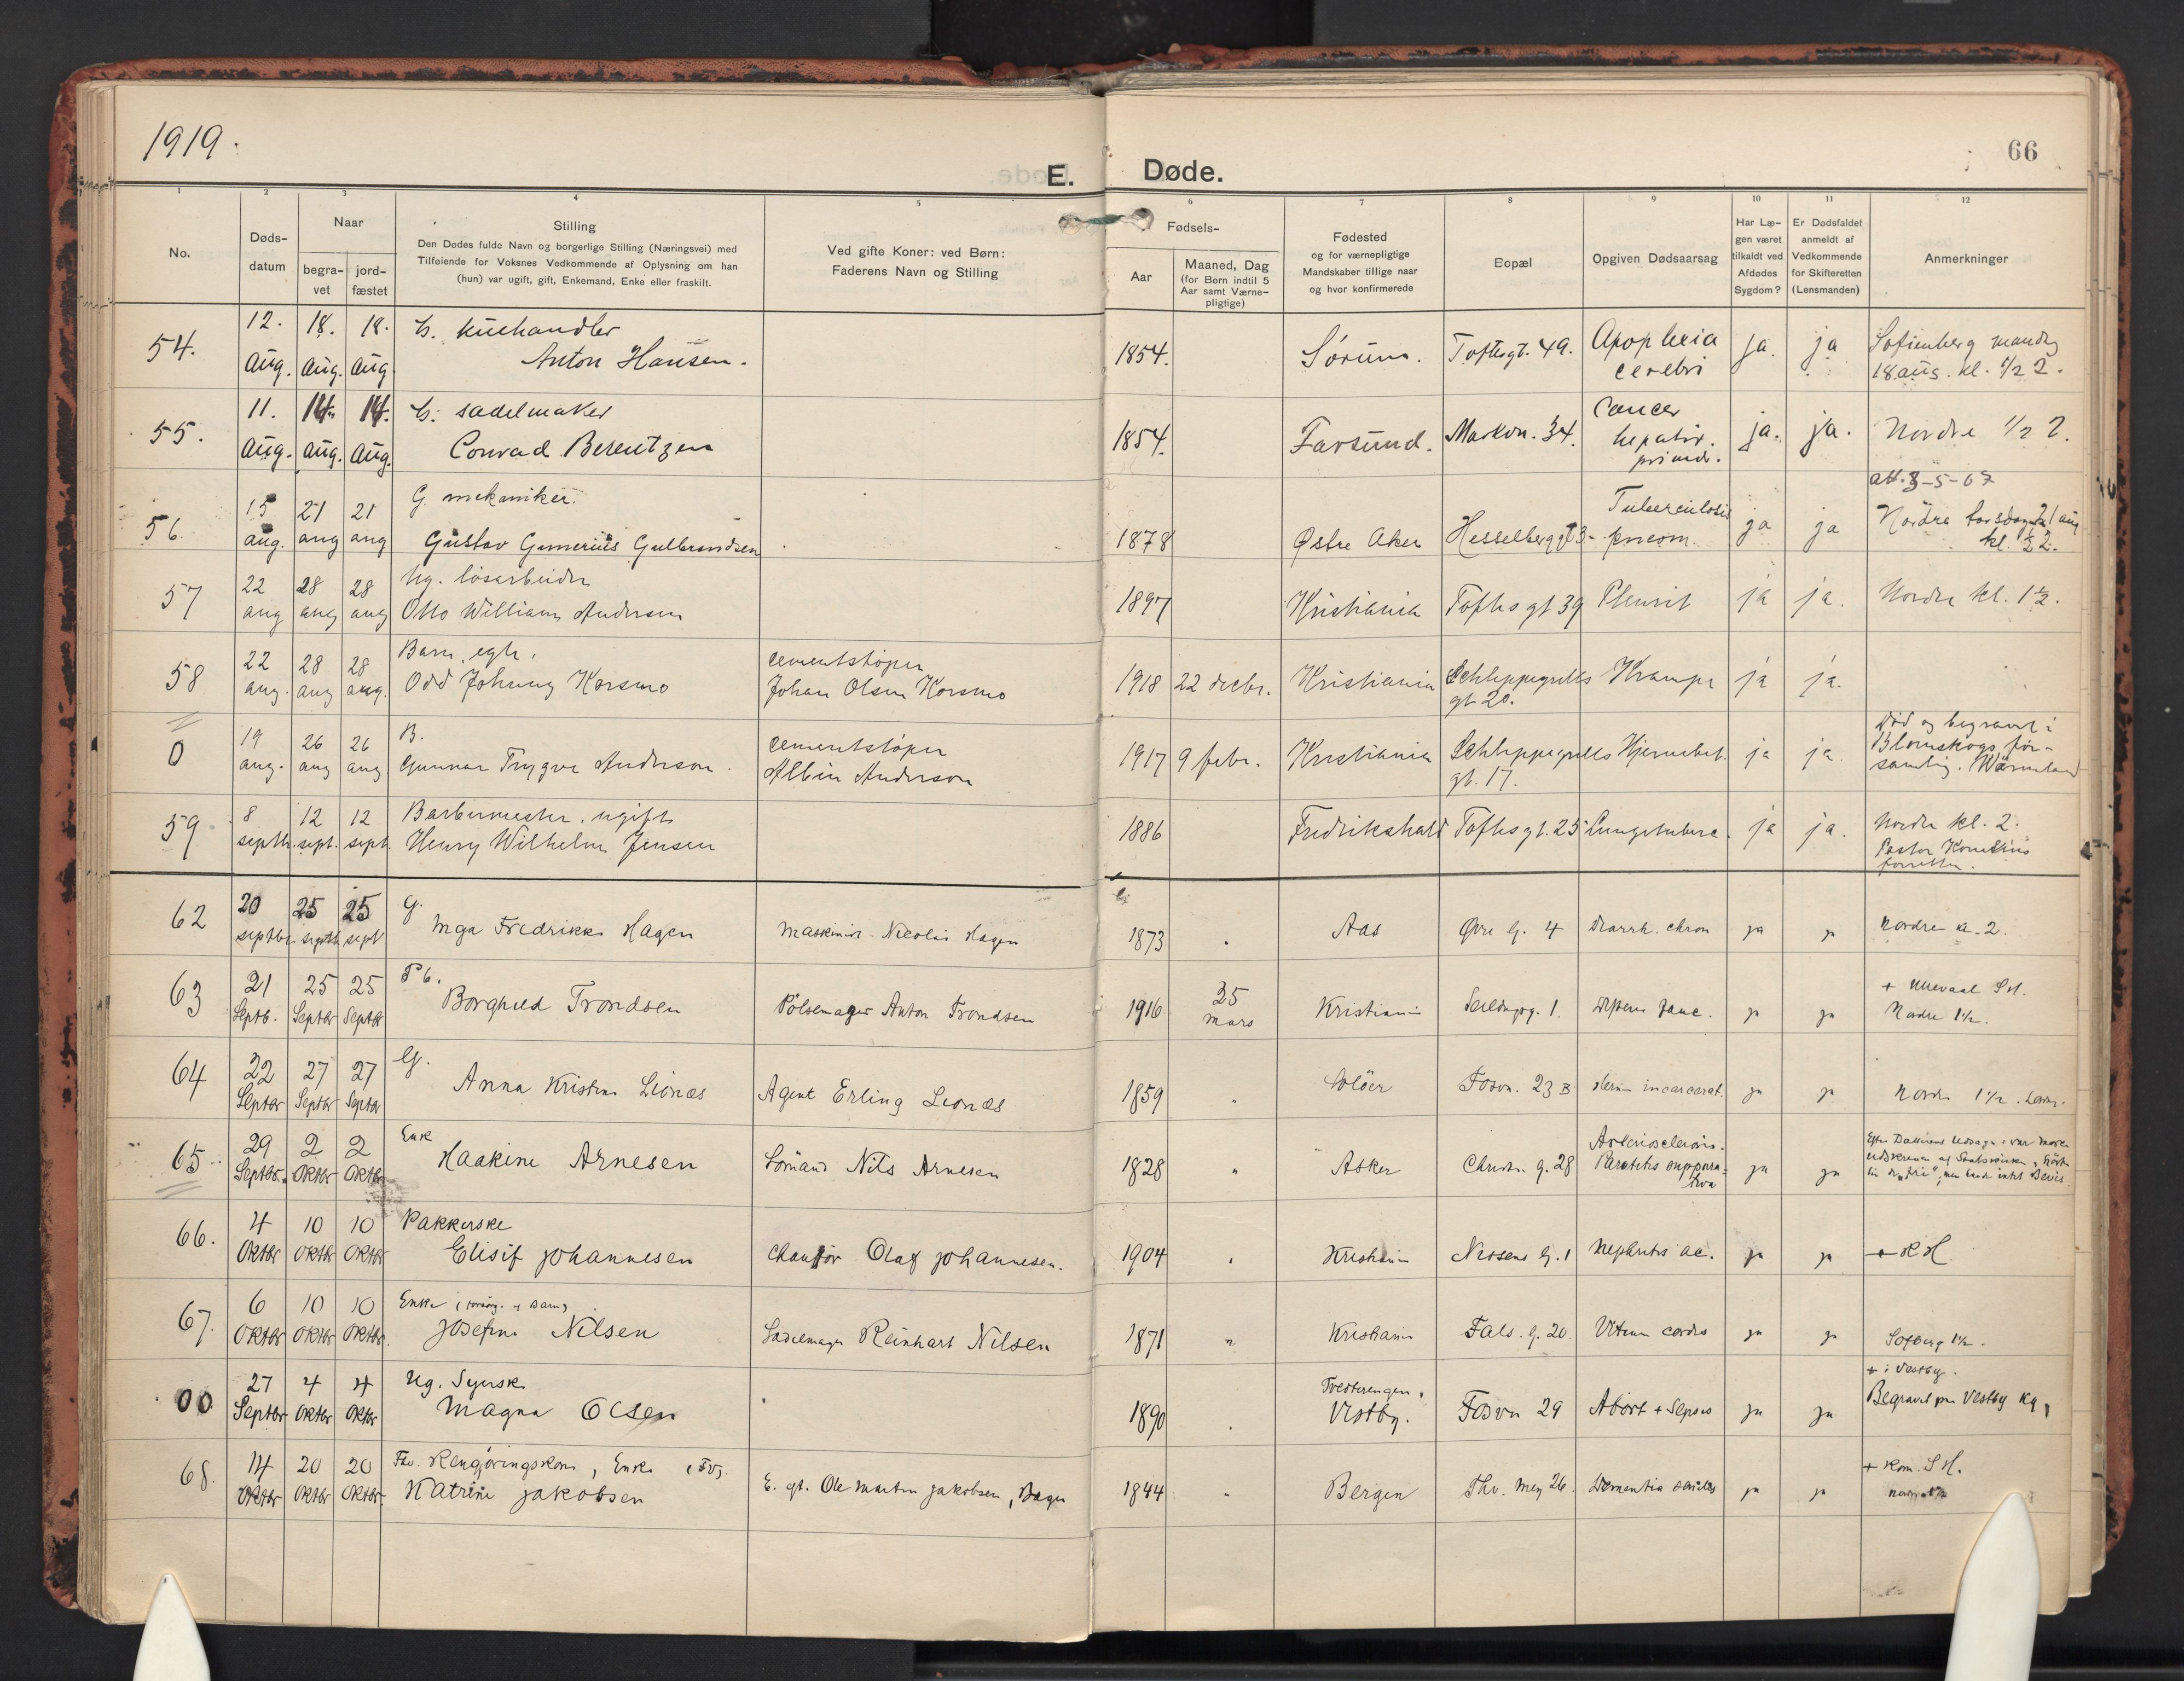 1919.
E. Døde.
66
1 2 3 4 5 6 7 8 9 10 11 12
No.
Døds-
datum
Naar
begra-
vet
jord-
fæstet
Stilling
Den Dødes fulde Navn og borgerlige Stilling (Næringsvei) med
Tilføiende for Voksnes Vedkommende af Oplysning om han
(hun) var ugift, gift, Enkemand, Enke eller fraskilt.
Ved gifte Koner: ved Børn:
Faderens Navn og Stilling
Fødsels-
Aar
Maaned, Dag
(for Børn indtil 5
Aar samt Værne-
pligtige)
Fødested
og for værnepligtige
Mandskaber tillige naar
og hvor konfirmerede
Bopæl
Opgiven Dødsaarsag
Har Læ-
gen været
tilkaldt ved
Afdødes
Sygdom?
Er Dødsfaldet
anmeldt af
Vedkommende
for Skifteretten
(Lensmanden)
Anmerkninger
54. 12. Aug. 18. Aug. 18. Aug.
G. kuehandler
Anton Hansen.
1854. Sørum. Toftesgt. 49. Apoplexia cerebri ja. ja
Sofienberg mandag
18 aug. kl. 1/2 2.
55. 11. Aug. 14. Aug. 14. Aug.
G. sadelmaker
Conrad Berentzen
1854. Farsund. Markvn. 34. Cancer hepatis. primær. ja. ja.
Nordre 1/2 2.
56. 15 aug. 21 aug 21 aug
G. mekaniker.
Gustav Gunerius Gulbrandsen
1878 Østre Aker Hesselbergsgt 3 Tuberculosis pneom. ja ja
att. 3-5-67
Nordre torsdag 21 aug
kl. 1/2 2.
57 22 aug 28 aug 28 aug
Ug. løsarbeider
Otto William Andersen
1897 Kristiania Toftes gt 39 Pleurit ja ja.
Nordre kl. 1 1/2.
58 22 aug. 28 aug 28 aug.
Barn, egte.
Odd Johnny Korsmo
cementstøper
Johan Olsen Korsmo
1918 22 decbr. Kristiania Schleppegrells gt 20. Krampe ja ja.
0 19 aug. 26 aug 26 aug
B.
Gunnar Trygve Anderson.
cementstøper
Albin Anderson
1917 9 febr. Kristiania Schleppegrells gt. 17. Hjernebet. ja ja
Død og begravet i
Blomskogs för-
samling. Wärmland
59 8 septbr. 12 sept. 12 sept.
Barbermester, ugift
Henry Wilhelm Jensen
1886 Fredrikshald Toftes gt. 25 Lungetuberc. ja ja.
Nordre kl. 2.
Pastor Kornelius
forretter.
62 20 septbr 25 septb 25 sept
G.
Inga Fredrikke Hagen
Maskinist Nicolai Hagen
1873 Aas Øvre g. 4 Diarrh. chron ja ja
Nordre kl. 2.
63 21 Septb. 25 Septbr 25 Septbr
P b.
Borghild Trondsen
Pølsemager Anton Trondsen
1916 25 mars Kristiania
+ Ullevaal S.H.
Nordre 1 1/2.
64 22 Septbr 27 Septbr 27 Septbr
G.
Anna Kristine Lionæs
Agent Erling Lionæs
1859 " Solöer Fosvn. 23 B Hernia incarcerat. ja ja
Nordre 1 1/2.
65 29 Septbr. 2 Oktbr 2 Oktbr
Enk
Haakine Arnesen
Sømand Nils Arnesen
1828 " Asker Christi g. 28 Arteriosclerosis. Parotitis suppura- tiva ja ja
66. 4 Oktbr 10 Oktbr 10 Oktbr
Pakkerske
Elisif Johannesen
Chauffør Olaf Johannesen.
1904 Kristiania Nissens g. 1 Nephritis ac. ja ja
+ R H.
67. 6 Oktbr 10 Oktbr 10 Oktbr.
Enke (forsørg. af Barn)
Josefine Nilsen
Sadelmager Reinhart Nilsen
1871 " Kristiania Fals. g. 20. Vitium cordis ja ja
Sofberg 1 1/2.
00 27 Septbr 4 Oktbr 4 Oktbr
Ug. Syerske
Magna Olsen
1890 Tvesterengen, Vestby. Fosvn 29 Abort + Sepsis ja ja
+ i Vestby.
Begravet paa Vestby Kg.
68. 14 Oktbr 20 Oktbr 20 Oktbr.
Fhv. Rengjøringskone, Enke (Fv).
Katrine Jakobsen
E. eft. Ole Martin Jakobsen, Bager
1844 " Bergen Thv. Mey 26. Dementia senilis ja ja
+ Kom. S H.